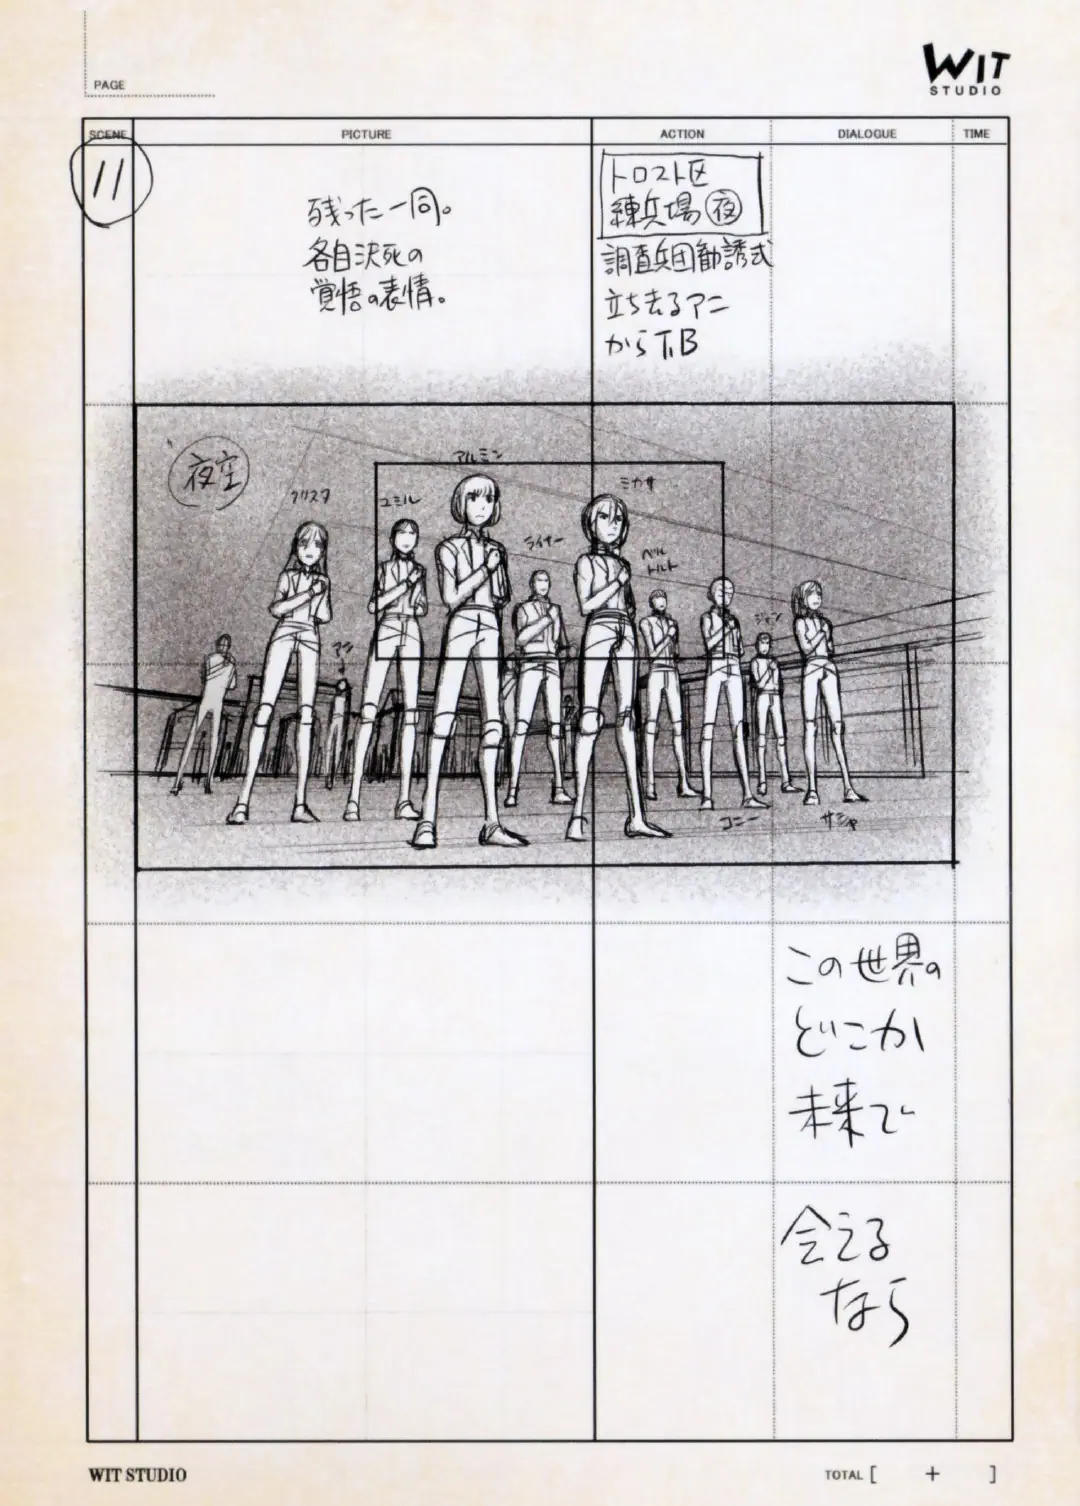 PAGE
WIT
STUDIO
SCENE
PICTURE
ACTION
DIALOGUE
TIME
11
残った一同。
各自決死の
覚悟の表情。
トロスト区
練兵場 夜
調査兵団勧誘式
立ち去るアニ
からT.B
夜空
クリスタ
ユミル
アルミン
ライナー
ミカサ
ベル
トルト
ジャン
アニ
コニー
サシャ
この世界の
どこか
未来で
会える
なら
WIT STUDIO
TOTAL [ + ]